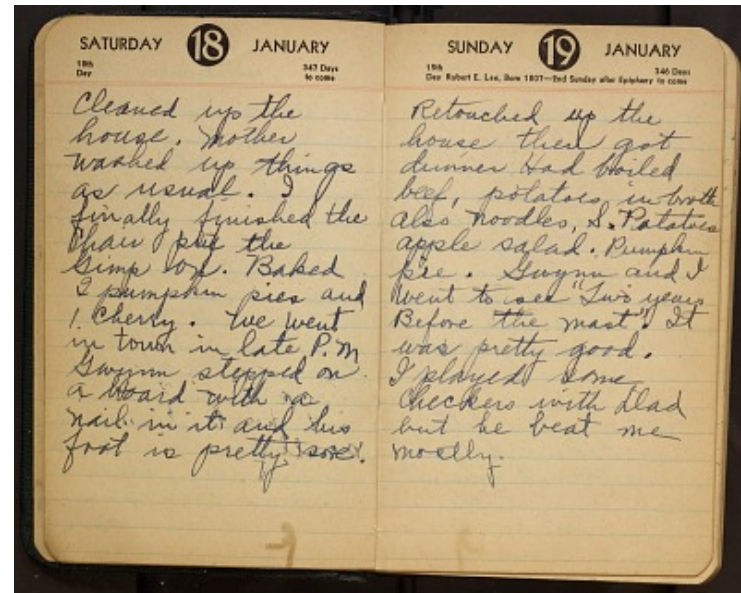 SATURDAY 18 JANUARY
18th
Day
347 Days
to come
Cleaned up the
house. Mother
washed up things
as usual. I
finally finished the
Chair put the
Gimp on. Baked
2 pumpkin pies and
1 Cherry. We went
in town in late P.M
Gwynn stepped on
a board with a
nail in it and his
foot is pretty sore.
SUNDAY 19 JANUARY
19th
Day Robert E. Lee, Born 1807—2nd Sunday after Epiphany
346 Days
to come
Retouched up the
house then got
dinner Had boiled
beef, potatoes in broth
also noodles, S. Potatoes
apple salad. Pumpkin
pie. Gwynn and I
went to see "Two years
Before the mast". It
was pretty good.
I played some
Checkers with Dad
but he beat me
mostly.